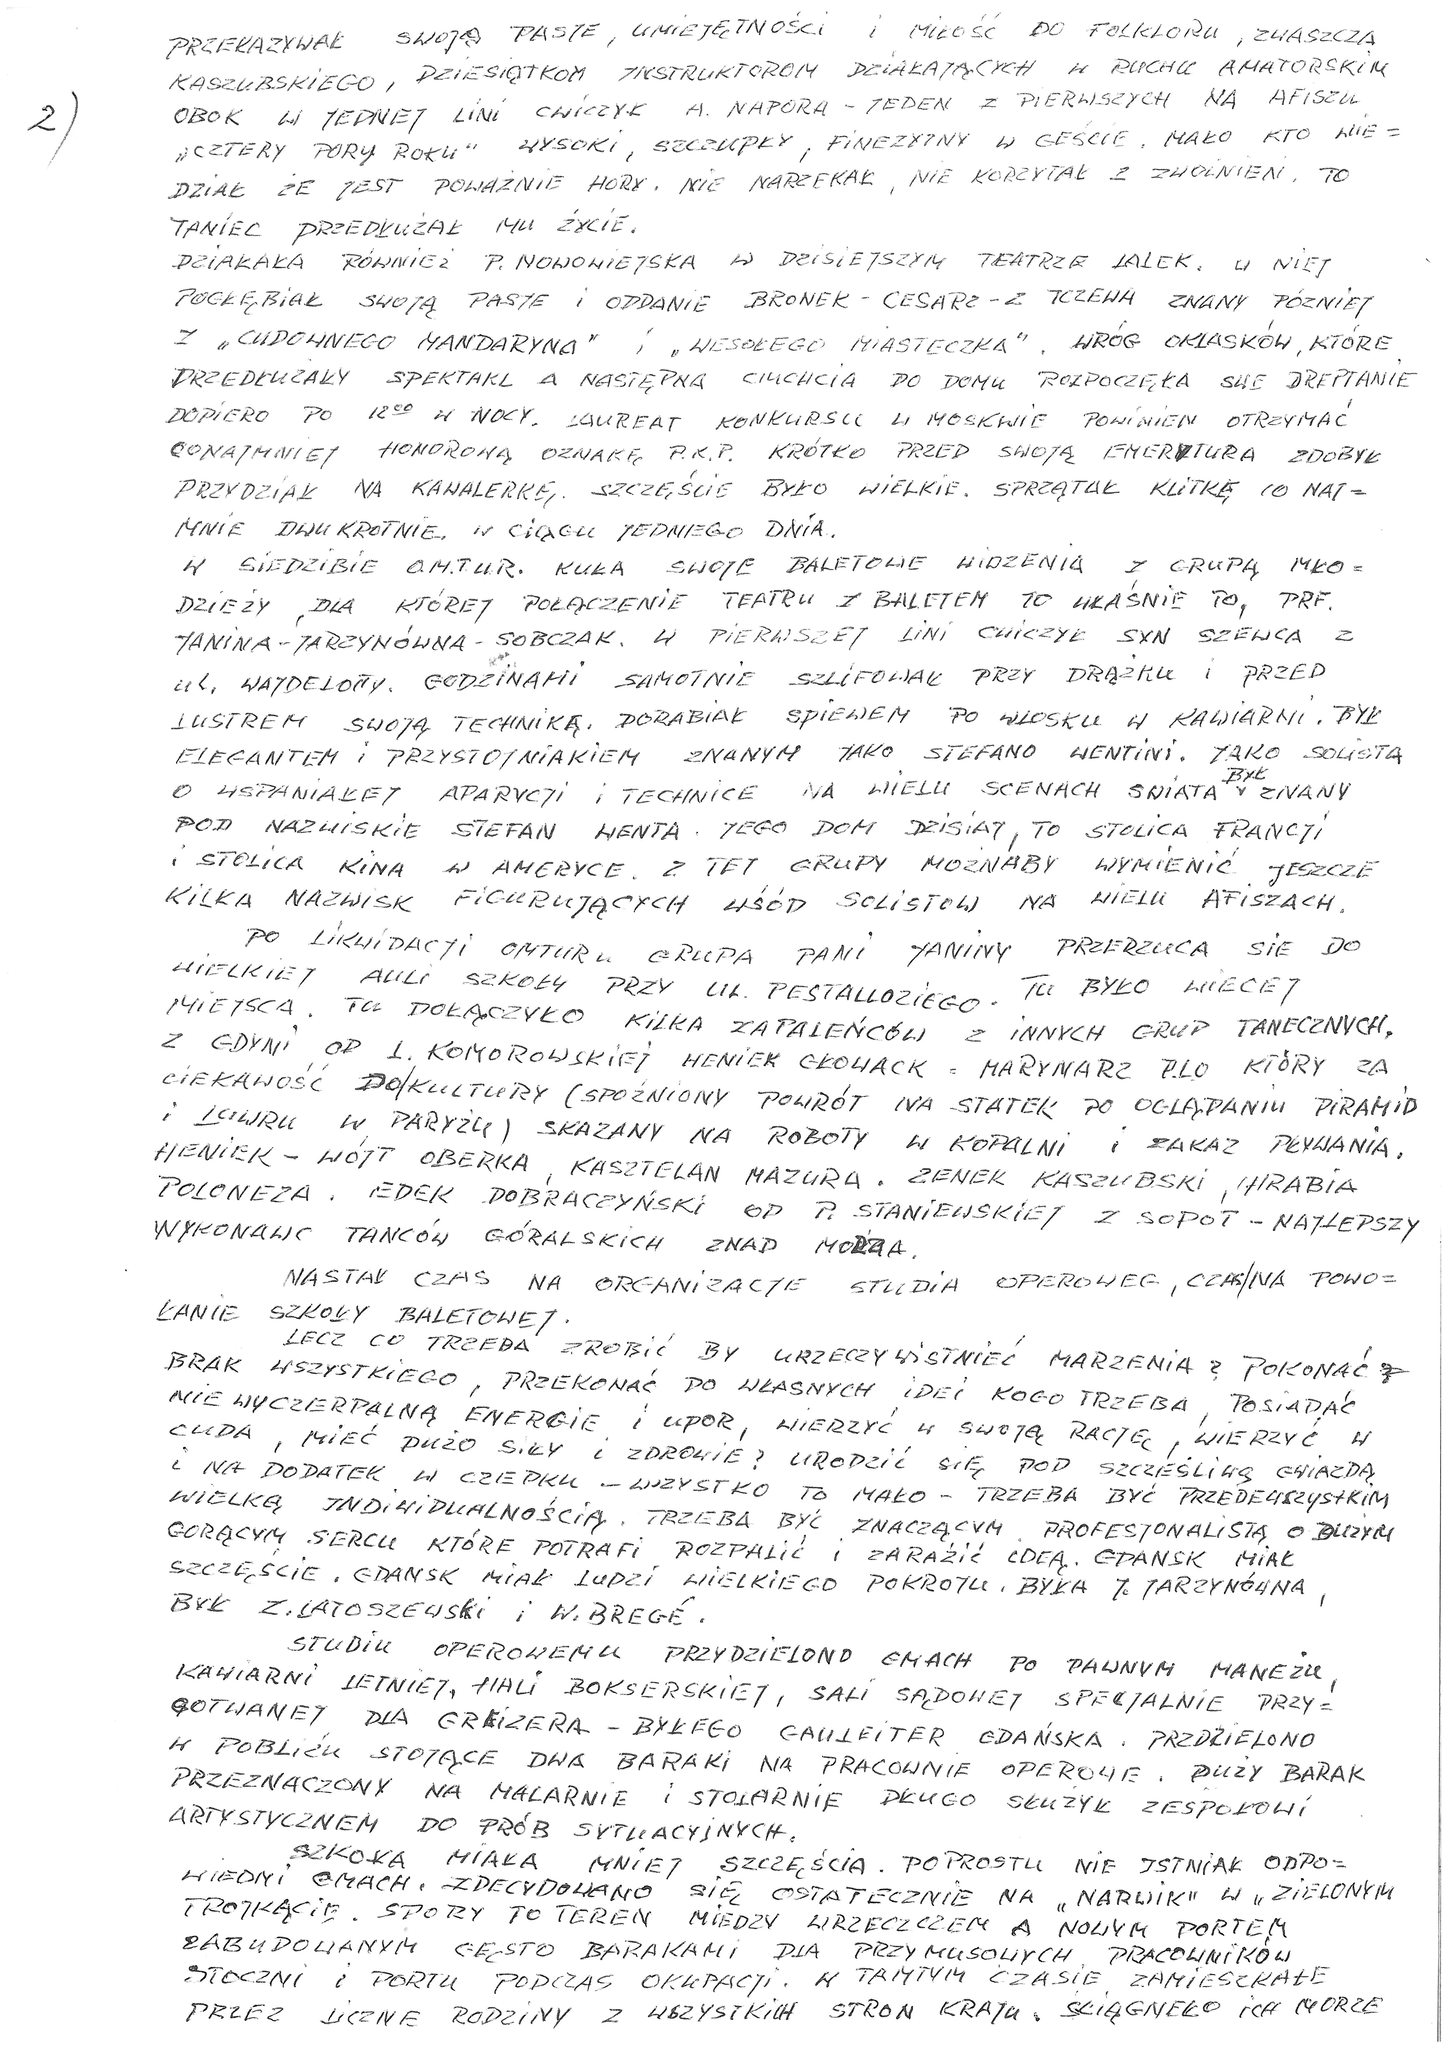 2)
PRZEKAZYWAŁ SWOJĄ PASJE, UMIEJĘTNOŚCI i MIŁOŚĆ DO FOLKLORU, ZWASZCZA
KASZUBSKIEGO, DZIESIĄTKOM INSTRUKTOROM DZIAŁAJĄCYCH W RUCHU AMATORSKIM
OBOK W JEDNEJ LINI CWICZYŁ A. NAPORA - JEDEN Z PIERWSZYCH NA AFISZU
„CZTERY PORY ROKU" WYSOKI, SZCZUPŁY, FINEZYJNY W GEŚCIE. MAŁO KTO WIE=
DZIAŁ ŻE JEST POWAŻNIE HORY. NIE NARZEKAŁ, NIE KORZYTAŁ Z ZWOLNIEŃ. TO
TANIEC PRZEDŁUŻAŁ MU ŻYCIE.
DZIAŁAŁA RÓWNIEŻ P. NOWOWIEJSKA W DZISIEJSZYM TEATRZE LALEK. U NIEJ
POGŁĘBIAŁ SWOJĄ PASJE i ODDANIE BRONEK - CESARZ - Z TCZEWA ZNANY PÓZNIEJ
Z „CUDOWNEGO MANDARYNA" i „WESOŁEGO MIASTECZKA". WRÓG OKLASKÓW, KTÓRE
PRZEDŁUŻAŁY SPEKTAKL A NASTĘPNA CIUCHCIA DO DOMU ROZPOCZĘŁA SWE DREPTANIE
DOPIERO PO 12⁰⁰ W NOCY. LAUREAT KONKURSU W MOSKWIE POWINIEN OTRZYMAĆ
CONAJMNIEJ HONOROWĄ OZNAKĘ P.K.P. KRÓTKO PRZED SWOJĄ EMERYTURA ZDOBYŁ
PRZYDZIAŁ NA KAWALERKĘ. SZCZĘŚCIE BYŁO WIELKIE. SPRZĄTAŁ KLITKĘ CO NAJ=
MNIE DWUKROTNIE W CIĄGU JEDNEGO DNIA.
W SIEDZIBIE O.M.T.U.R. KUŁA SWOJE BALETOWE WIDZENIA Z GRUPĄ MŁO=
DZIEŻY, DLA KTÓREJ POŁĄCZENIE TEATRU Z BALETEM TO WŁAŚNIE TO, PRF.
JANINA - JARZYNÓWNA - SOBCZAK. W PIERWSZEJ LINI CWICZYŁ SYN SZEWCA Z
UL. WAJDELOTY. GODZINAMI SAMOTNIE SZLIFOWAŁ PRZY DRĄŻKU i PRZED
LUSTREM SWOJĄ TECHNIKĄ. DORABIAŁ SPIEWEM PO WŁOSKU W KAWIARNI. BYŁ
ELEGANTEM i PRZYSTOJNIAKIEM ZNANYM JAKO STEFANO WENTINI. JAKO SOLISTA
O WSPANIAŁEJ APARYCJI i TECHNICE NA WIELU SCENACH SWIATA BYŁ ZNANY
POD NAZWISKIE STEFAN WENTA. JEGO DOM DZISIAJ, TO STOLICA FRANCJI
i STOLICA KINA W AMERYCE. Z TEJ GRUPY MOZNABY WYMIENIĆ JESZCZE
KILKA NAZWISK FIGURUJĄCYCH WŚÓD SOLISTOW NA WIELU AFISZACH.
PO LIKWIDACJI OMTURU GRUPA PANI JANINY PRZERZUCA SIE DO
WIELKIEJ AULI SZKOŁY PRZY UL. PESTALLOZIEGO. TU BYŁO WIECEJ
MIEJSCA. TU DOŁĄCZYŁO KILKA ZAPALEŃCÓW Z INNYCH GRUP TANECZNYCH.
Z GDYNI OD L. KOMOROWSKIEJ HENIEK GŁOWACK = MARYNARZ P.L.O KTÓRY ZA
CIEKAWOŚĆ DO/KULTURY (SPOŹNIONY POWRÓT NA STATEK PO OGLĄDANIU PIRAMID
i LUWRU W PARYŻU) SKAZANY NA ROBOTY W KOPALNI i ZAKAZ PŁYWANIA.
HENIEK - WÓJT OBERKA, KASZTELAN MAZURA. ZENEK KASZUBSKI, HRABIA
POLONEZA. EDEK DOBRACZYŃSKI OD P. STANIEWSKIEJ Z SOPOT - NAJLEPSZY
WYKONAWC TANCÓW GÓRALSKICH ZNAD MORZA.
NASTAŁ CZAS NA ORGANIZACJE STUDIA OPEROWEG, CZAS/NA POWO=
ŁANIE SZKOŁY BALETOWEJ.
LECZ CO TRZEBA ZROBIĆ BY URZECZYWISTNIEĆ MARZENIA? POKONAĆ
BRAK WSZYSTKIEGO, PRZEKONAĆ DO WŁASNYCH IDEI KOGO TRZEBA, POSIADAĆ
NIEWYCZERPALNĄ ENERGIE i UPOR, WIERZYĆ W SWOJĄ RACJĘ, WIERZYĆ W
CUDA, MIEĆ DUŻO SIŁY i ZDROWIE? URODZIĆ SIĘ POD SZCZEŚLIWĄ GWIAZDĄ
i NA DODATEK W CZEPKU - WZYSTKO TO MAŁO - TRZEBA BYĆ PRZEDEWSZYSTKIM
WIELKĄ INDIWIDUALNOŚCIĄ. TRZEBA BYĆ ZNACZĄCYM PROFESJONALISTĄ O DUŻYM
GORĄCYM SERCU KTÓRE POTRAFI ROZPALIĆ i ZARAŹIĆ IDEĄ. GDANSK MIAŁ
SZCZĘŚCIE. GDANSK MIAŁ LUDZI WIELKIEGO POKROJU. BYŁA J. JARZYNÓWNA,
BYŁ Z. LATOSZEWSKI i W. BREGÉ.
STUDIU OPEROWEMU PRZYDZIELONO GMACH PO DAWNYM MANEŻU,
KAWIARNI LETNIEJ, HALI BOKSERSKIEJ, SALI SĄDOWEJ SPECJALNIE PRZY=
GOTWANEJ DLA GREIZERA - BYŁEGO GAULEITER GDAŃSKA. PRZDZIELONO
W POBLIŻU STOJĄCE DWA BARAKI NA PRACOWNIE OPEROWE. DUŻY BARAK
PRZEZNACZONY NA MALARNIE i STOLARNIĘ DŁUGO SŁUŻYŁ ZESPOŁOWI
ARTYSTYCZNEM DO PRÓB SYTUACYJNYCH.
SZKOŁA MIAŁA MNIEJ SZCZĘŚCIA. POPROSTU NIE ISTNIAŁ ODPO=
WIEDNI GMACH. ZDECYDOWANO SIĘ OSTATECZNIE NA „NARWIK" W „ZIELONYM
TROJKĄCIĘ. SPORY TO TEREN MIEDZY WRZECZCZEM A NOWYM PORTEM
ZABUDOWANYM GĘSTO BARAKAMI DLA PRZYMUSOWYCH PRACOWNIKÓW
STOCZNI i PORTU PODCZAS OKUPACJI. W TAMTYM CZASIE ZAMIESZKAŁE
PRZEZ LICZNE RODZINY Z WSZYSTKICH STRON KRAJU. ŚCIĄGNEŁO ICH MORZE